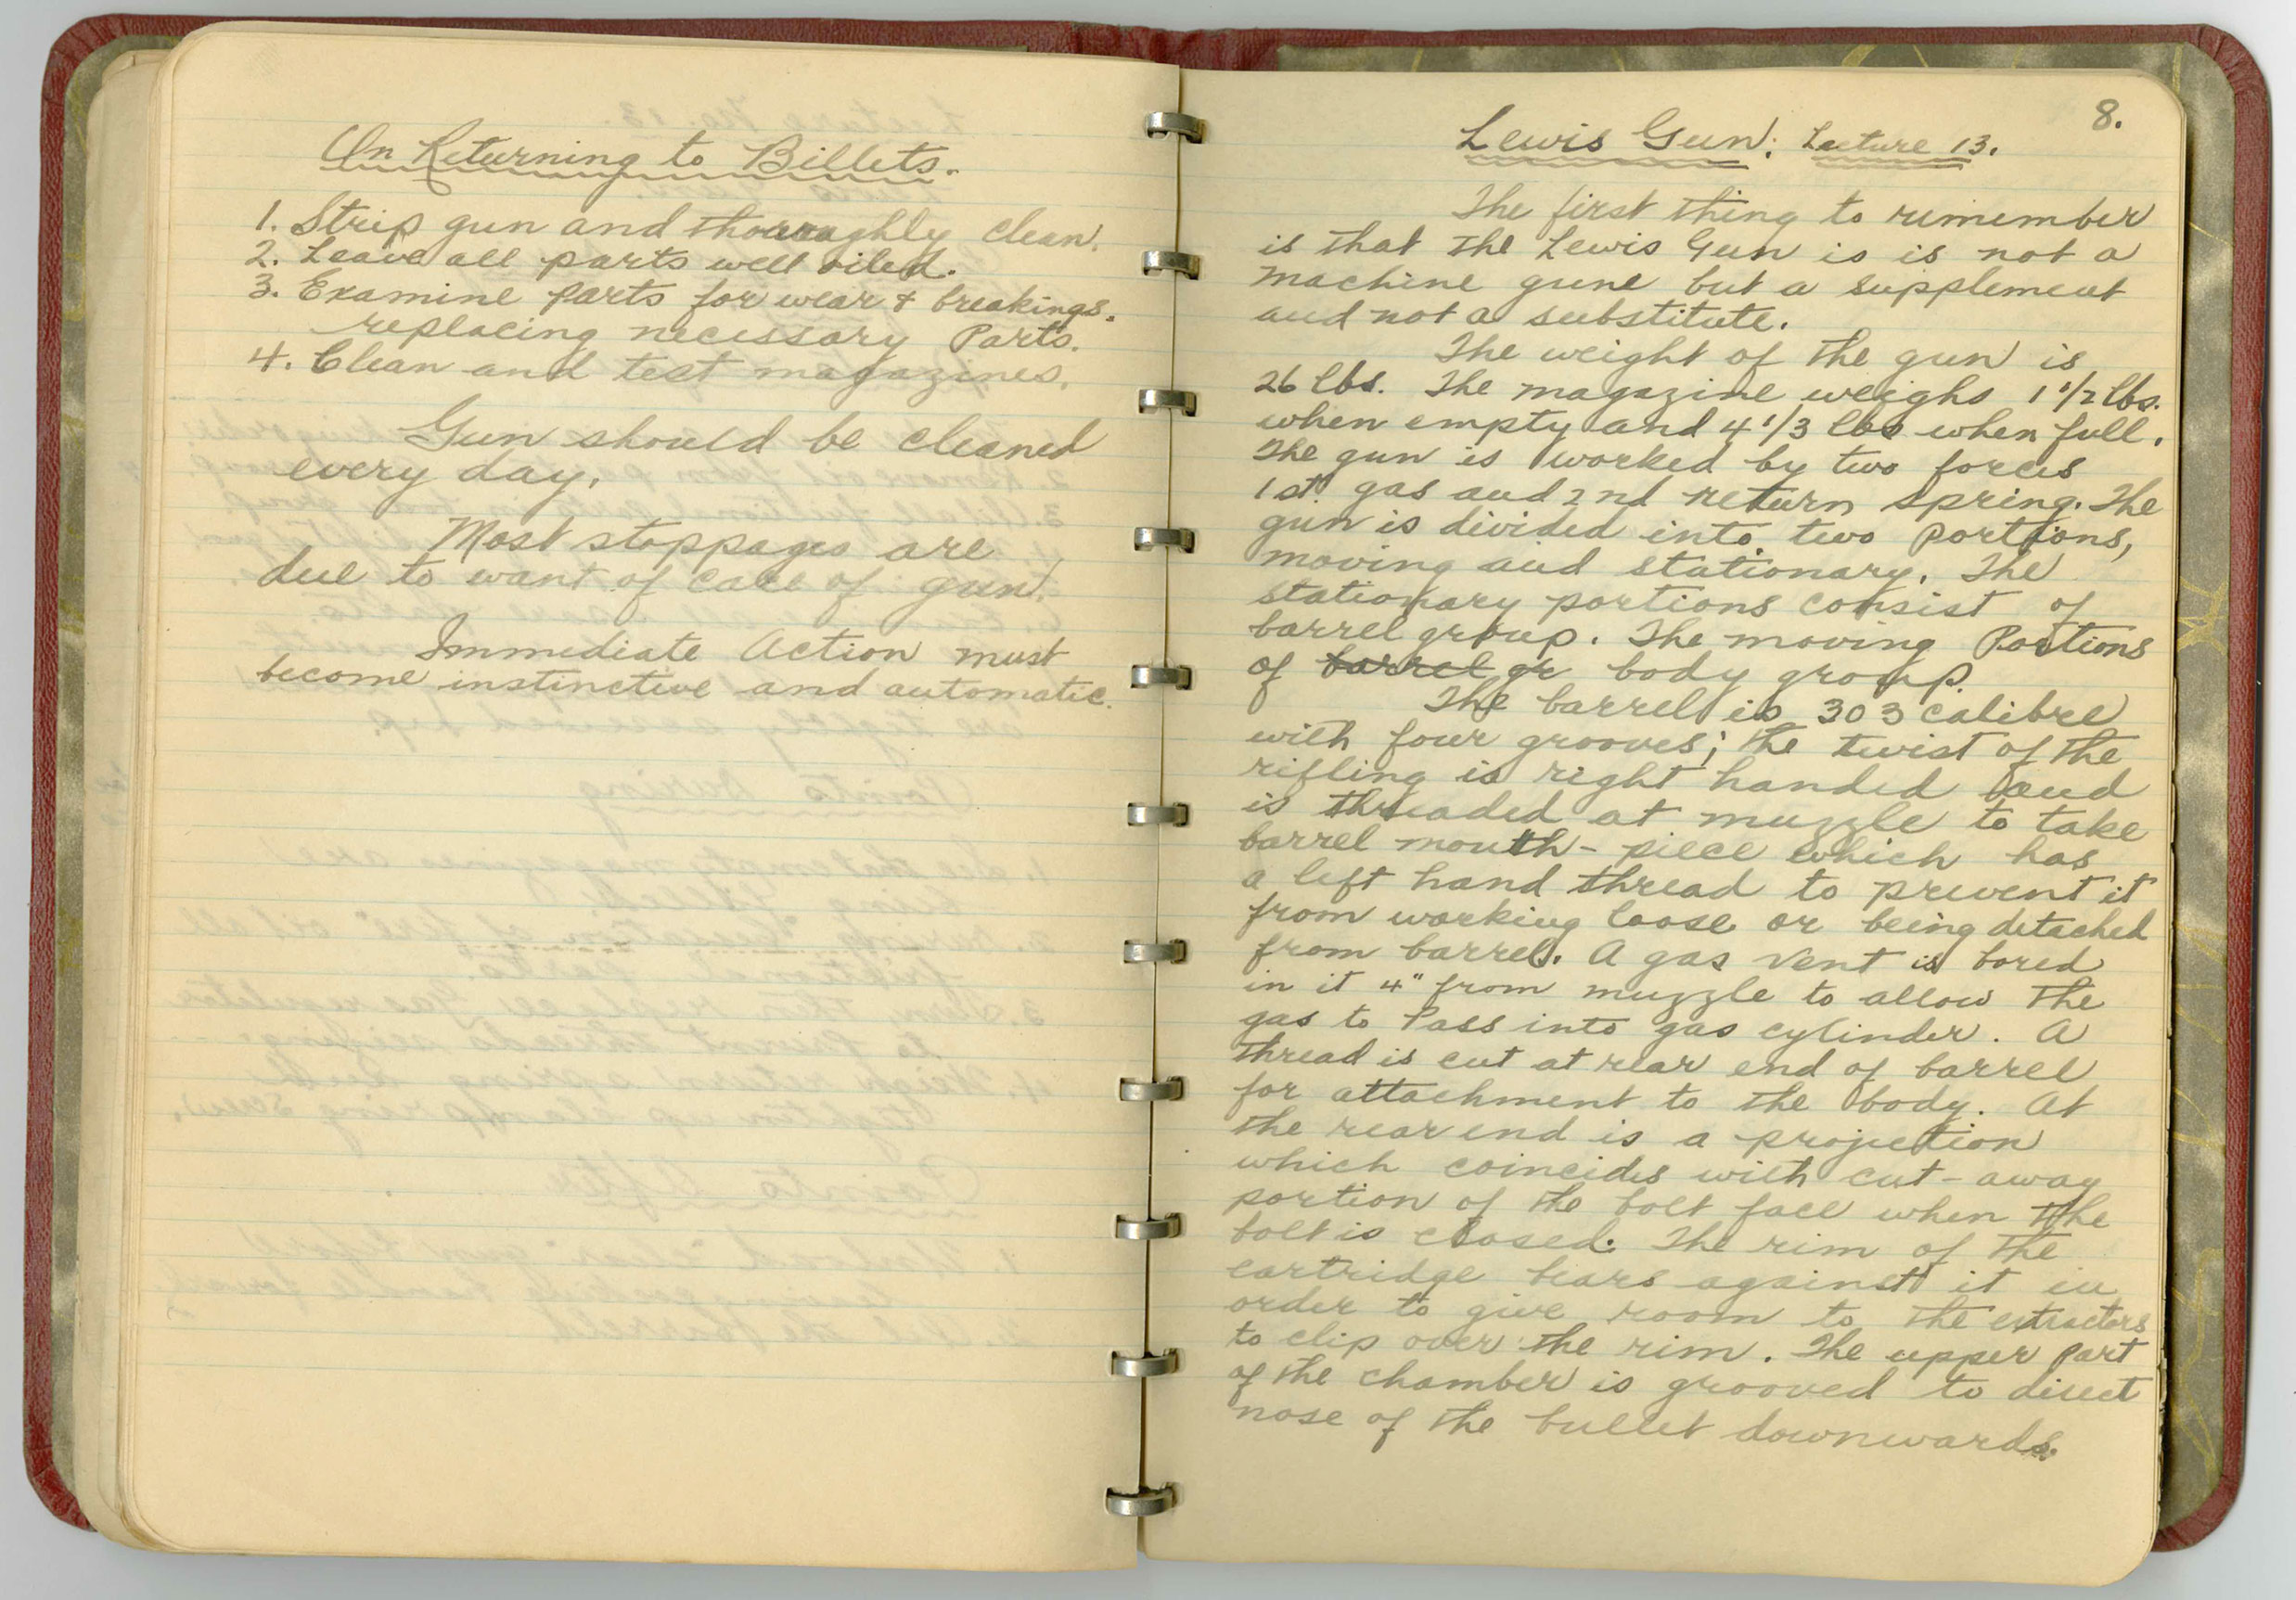 On Returning to Billets.
1. Strip gun and thoroughly clean.
2. Leave all parts well oiled.
3. Examine Parts for wear + breakings.
replacing necessary Parts.
4. Clean and test magazines.
Gun should be cleaned
every day.
Most stoppages are
due to want of care of gun.
Immediate Action must
become instinctive and automatic.
8.
Lewis Gun: Lecture 13.
The first thing to rimember
is that the Lewis Gun is is not a
machine gune but a supplement
and not a substitute.
The weight of the gun is
26 lbs. The magazine weighs 1 1/2 lbs.
when empty and 4 1/3 lbs when full.
The gun is worked by two forces
1st gas and 2nd return spring. The
gun is divided into two Portions,
moving and stationary. The
stationary portions consist of
barrel group. The moving Portions
of barrel gr body group.
The barrel is 303 calibre
with four grooves; the twist of the
rifling is right handed and
is threaded at muzzle to take
barrel mouth-piece which has
a left hand thread to prevent it
from working loose or being detached
from barrel. A gas vent is bored
in it 4" from muzzle to allow the
gas to Pass into gas cylinder. A
thread is cut at rear end of barrel
for attachment to the body. At
the rear end is a projection
which coincides with cut-away
portion of the bolt face when the
bolt is closed. The rim of the
cartridge bears against it in
order to give room to the extractors
to clip over the rim. The upper Part
of the chamber is grooved to direct
nose of the bullet downwards.